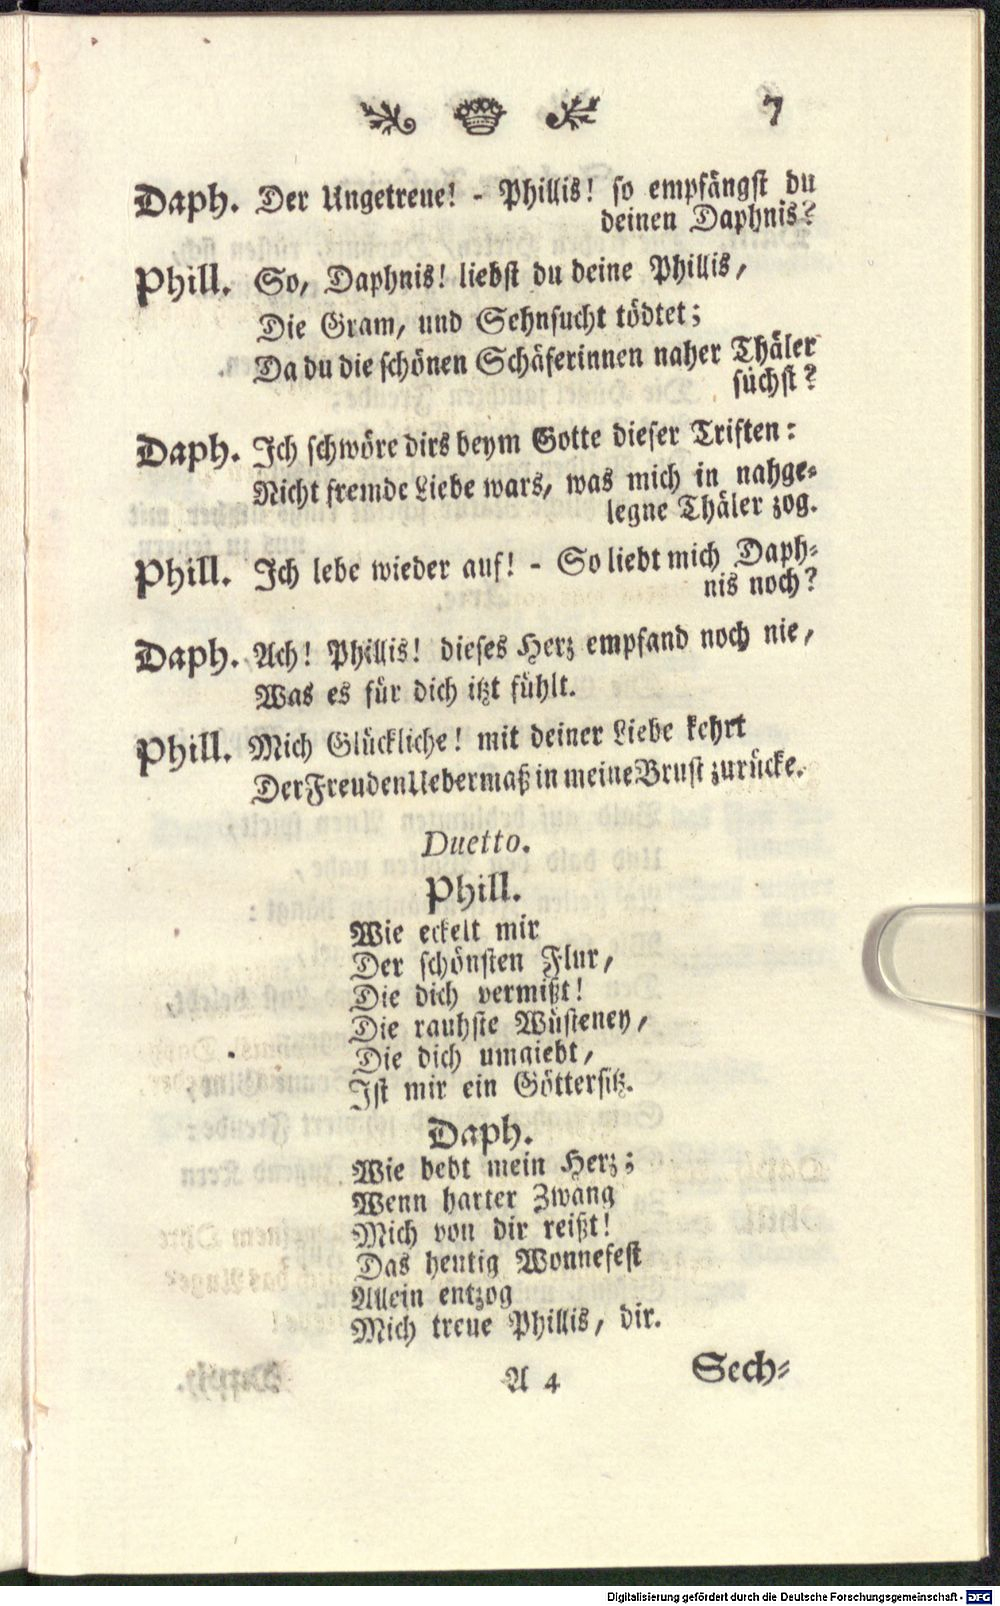 7
Daph. Der Ungetreue! - Phillis! so empfängst du
deinen Daphnis?
Phill. So, Daphnis! liebst du deine Phillis,
Die Gram, und Sehnsucht tödtet;
Da du die schönen Schäferinnen naher Thäler
süchst?
Daph. Ich schwöre dirs beym Gotte dieser Triften:
Nicht fremde Liebe wars, was mich in nahge-
legne Thäler zog.
Phill. Ich lebe wieder auf! - So liebt mich Daph-
nis noch?
Daph. Ach! Phillis! dieses Herz empfand noch nie,
Was es für dich itzt fühlt.
Phill. Mich Glückliche! mit deiner Liebe kehrt
Der Freuden Uebermaß in meine Brust zurücke.
Duetto.
Phill.
Wie eckelt mir
Der schönsten Flur,
Die dich vermißt!
Die rauhste Wüsteney,
Die dich umgiebt,
Ist mir ein Göttersitz.
Daph.
Wie bebt mein Herz;
Wenn harter Zwang
Mich von dir reißt!
Das heutig Wonnefest
Allein entzog
Mich treue Phillis, dir.
A 4 Sech-
Digitalisierung gefördert durch die Deutsche Forschungsgemeinschaft - DFG